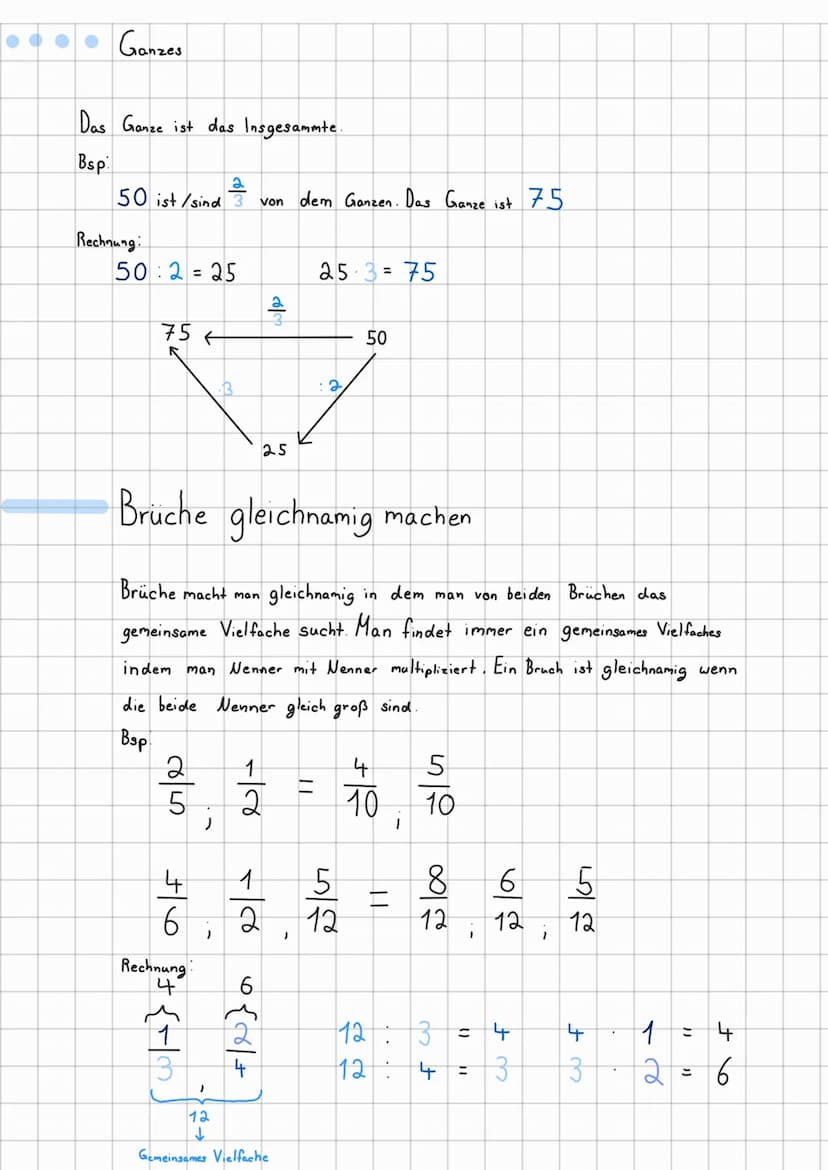 Ganzes
Das Ganze ist das Insgesammte.
Bsp:
50 ist/sind 2/3 von dem Ganzen. Das Ganze ist 75
Rechnung:
50 : 2 = 25 25 · 3 = 75
2/3
75 50
·3 :2
25
Brüche gleichnamig machen
Brüche macht man gleichnamig in dem man von beiden Brüchen das
gemeinsame Vielfache sucht. Man findet immer ein gemeinsames Vielfaches
indem man Nenner mit Nenner multipliziert. Ein Bruch ist gleichnamig wenn
die beide Nenner gleich groß sind.
Bsp.
2/5 ; 1/2 = 4/10 ; 5/10
4/6 ; 1/2 , 5/12 = 8/12 ; 6/12 ; 5/12
Rechnung:
4 6
1/3 , 2/4
12 : 3 = 4 4 · 1 = 4
12 : 4 = 3 3 · 2 = 6
12
↓
Gemeinsames Vielfache